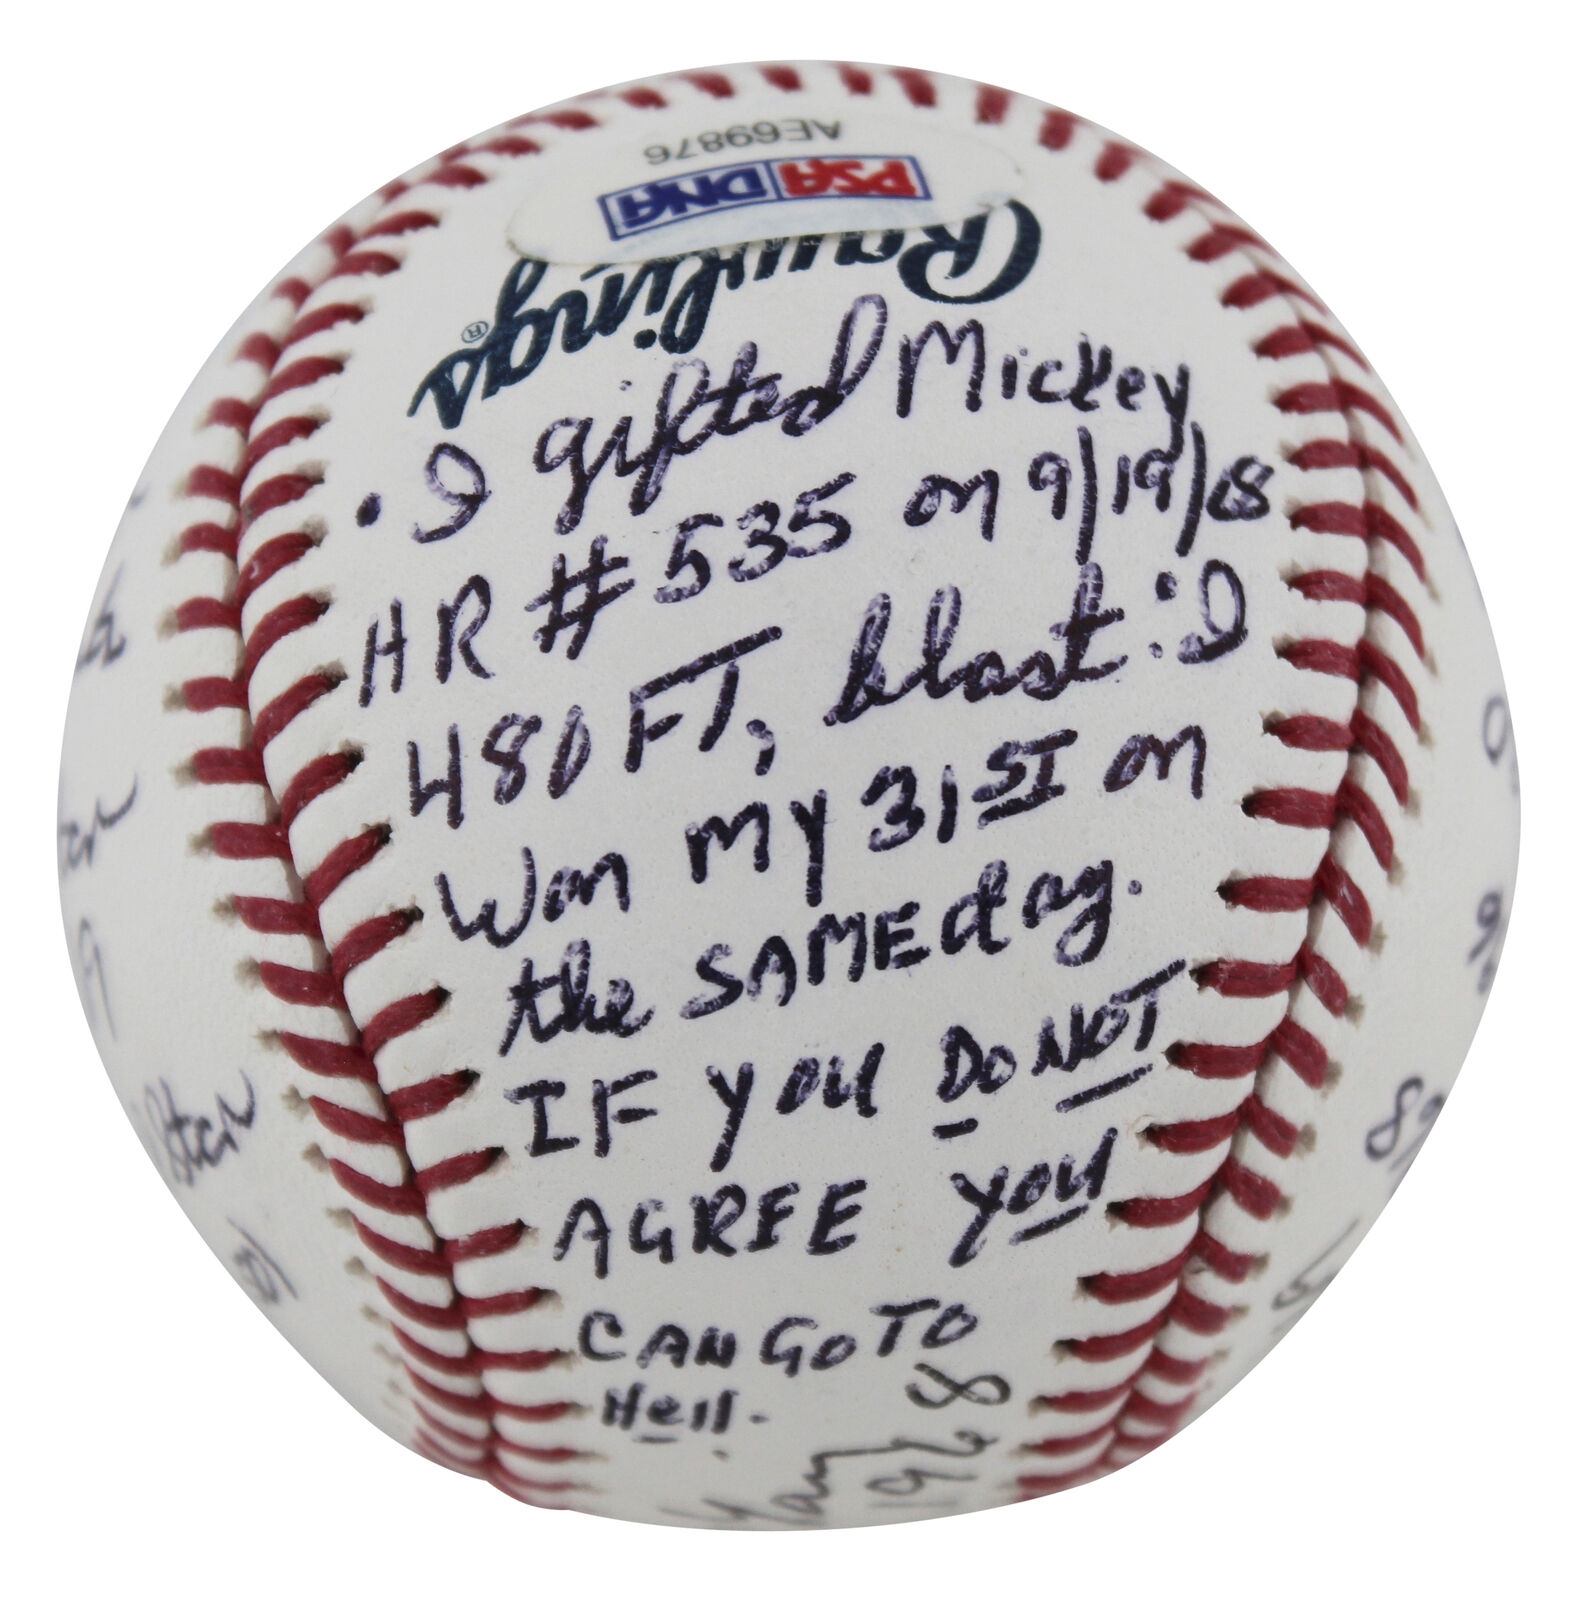 AE69876
PSA DNA
Rawlings®
• I gifted Mickey
HR # 535 on 9/19/68
480 FT, blast: I
Won my 31ST on
the SAME day.
IF you DO NOT
AGREE you
CAN GO TO
Hell.
1968
Star
9
89